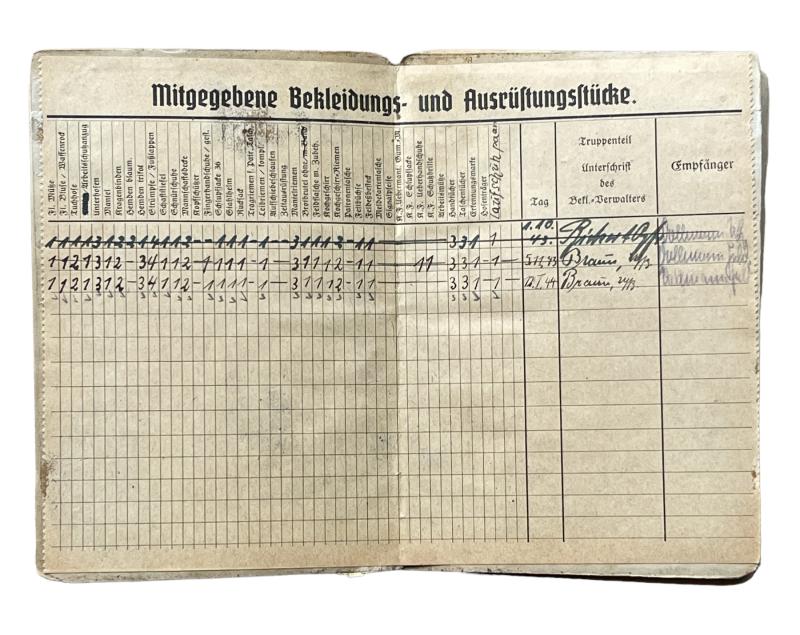 Mitgegebene Bekleidungs- und Ausrüstungsstücke.
Fl. Mütze
Fl. Bluse / Waffenrock
Tuchhose
Arbeitsschuhanzug
Unterhosen
Mantel
Kragenbinden
Hemden blaum.
Hemden trikot
Strümpfe / Fußlappen
Schaftstiefel
Schnürschuhe
Mannschaftsdecke
Kopfschützer
Fingerhandschuhe / gest.
Schlupfjacke 36
Stahlhelm
Rucksack
Tragriemen f. Patr. Tasch.
Leibriemen / kompl.
Aufschiebeschlaufen
Zeltausrüstung
Mantelriemen
Brotbeutel ohne / m. Band
Feldflasche m. Zubeh.
Kochgeschirr
Kochgeschirr-Riemen
Patronentasche
Fettbüchse
Feldbesteck
Meldekartentasche
Signalpfeife
K. F. Schlupfjacke
K. F. Überhandschuhe
K. F. Schutzbrille
Arbeitsmütze
Handtücher
Taschentücher
Erkennungsmarke
Hosenträger
Tag
Truppenteil
Unterschrift
des
Bekl.-Verwalters
Empfänger
1 1 1 1 3 1 2 2 1 4 1 1 2 - - 1 1 1 - 1 - 3 1 1 1 2 - 1 1 3 3 1 1 1.10. 43.
1 1 2 1 3 1 2 - 3 4 1 1 2 - 1 1 1 1 - 1 - 3 1 1 1 2 - 1 1 1 1 3 3 1 1 Braun,
1 1 2 1 3 1 2 - 3 4 1 1 2 - 1 1 1 1 - 1 - 3 1 1 1 2 - 1 1 3 3 1 1 12.I.44 Braun,